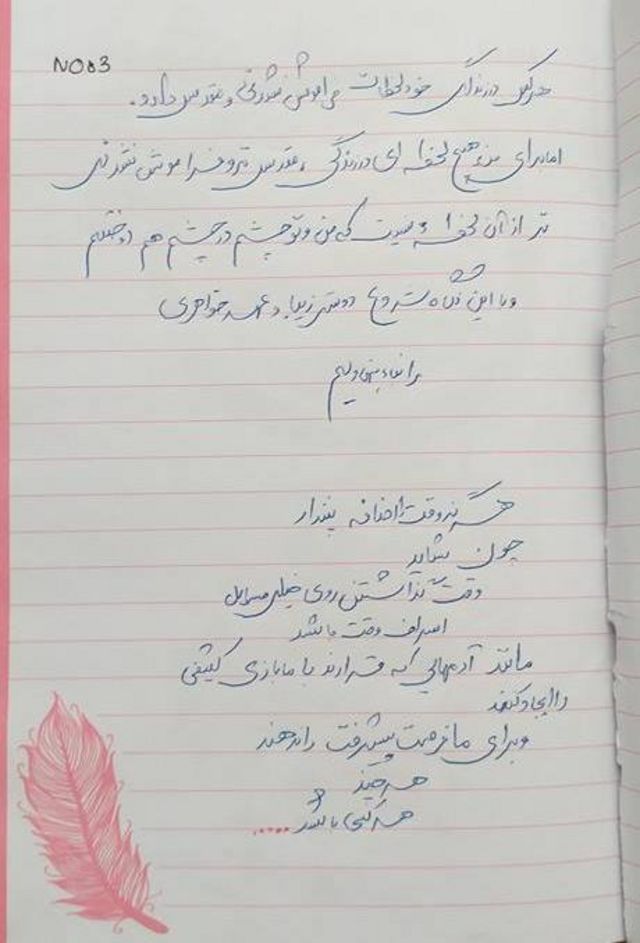 NO83
هرکس در زندگی خود لحظات فراموش نشدنی و مقدس دارد.
اما برای من هیچ لحظه ای در زندگی مقدس تر و فراموش نشدنی
تر از آن لحظه نیست که من و تو چشم در چشم هم دوختیم
و با این نگاه شروع دوستی زیبا و خواهری
را بنا نهادیم
هرگز وقت را اضافه پندار
چون شاید
وقت گذاشتن روی خیلی مسایل
اسراف وقت باشد
مانند آدمهایی که قرارند با ما بازی کثیفی
را ایجاد کنند
و برای ما فرصت پیشرفت را ندهند
هر چند
هر کسی باشد .....